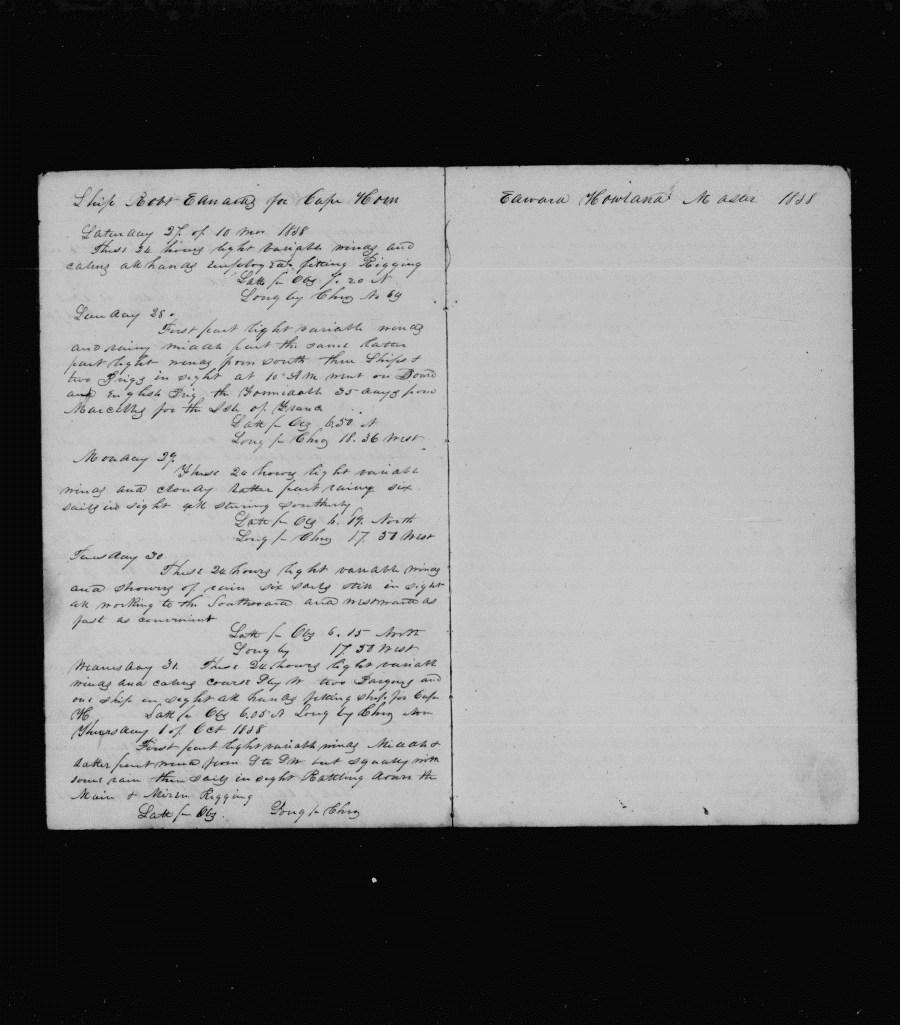 Ship Robt Edwards for Cape Horn
Saturday 27. of 10 mo. 1838
These 24 hours light variable winds and
calms all hands employed fitting Rigging
Latt pr Obs 7. 20 N
Long by Chro No 64
Sunday 28.
First part light variable winds
and rainy middle part the same Later
part light winds from south three Ships &
two Brigs in sight at 10 AM went on Board
and English Brig the Formidable 35 days from
Marcelles for the Isle of France
Latt pr Obs 6.50 N
Long pr Chro 18. 36 West
Monday 29.
These 24 hours light variable
winds and cloudy Latter part rainy six
sails in sight all stering southerly
Latt pr Obs 6. 19. North
Long pr Chro 17. 50 West
Tuesday 30
These 24 hours light variable winds
and showers of rain six sails still in sight
all working to the Southward and westward as
fast as convenient
Latt pr Obs 6. 15 North
Long by 17. 50 West
Wednesday 31. These 24 hours light variable
winds and calms course S by W two and
one ship in sight all hands fitting ship for Cape
H. Latt pr Obs 6.05 N Long by Chro
Thursday 1 of Oct 1838
First part light variable winds Middle &
Latter part wind from S to SW but squally with
some rain three sails in sight Rattling down the
Main & Mizen Rigging
Latt pr Obs. Long pr Chro
Edward Howland Master 1838